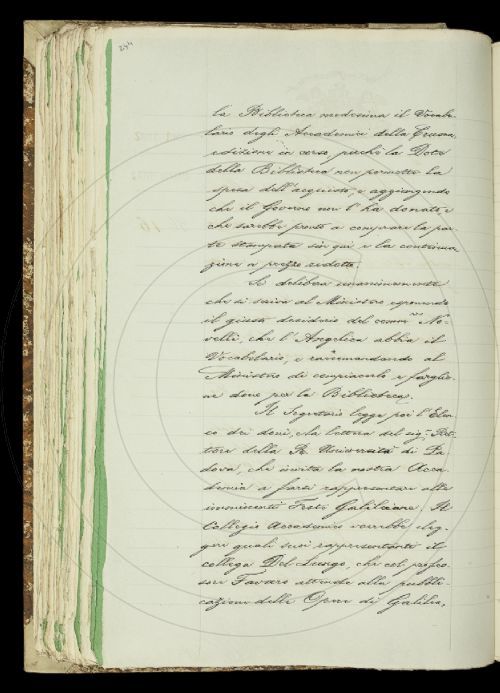 la Biblioteca medesima il Vocabo-
lario degli Accademici della Crusca,
edizione in corso perchè la Dote
della Biblioteca non permette la
spesa dell'acquisto, e aggiungendo
che il Governo non l'ha donato, e
che sarebbe pronto a comprare la par-
te stampata sin qui e la continua-
zione a prezzo ridotto.
Si delibera unanimamente
che si scriva al Ministro esponendo
il giusto desiderio del comm. No-
velli, che l'Angelica abbia il
Vocabolario, e raccomandando al
Ministro di compiacerlo e farglie-
ne dono per la Biblioteca.
Il Segretario legge poi l'Elen-
co dei doni, e la lettera del sig. Ret-
tore della R. Università di Pa-
dova, che invita la nostra Acca-
demia a farsi rappresentare alle
imminenti Feste Galileiane. Il
Collegio Accademico vorrebbe eleg-
gere quali suoi rappresentanti il
collega Del Lungo, che col profes-
sore Favaro attende alla pubbli-
cazione delle Opere di Galileo,